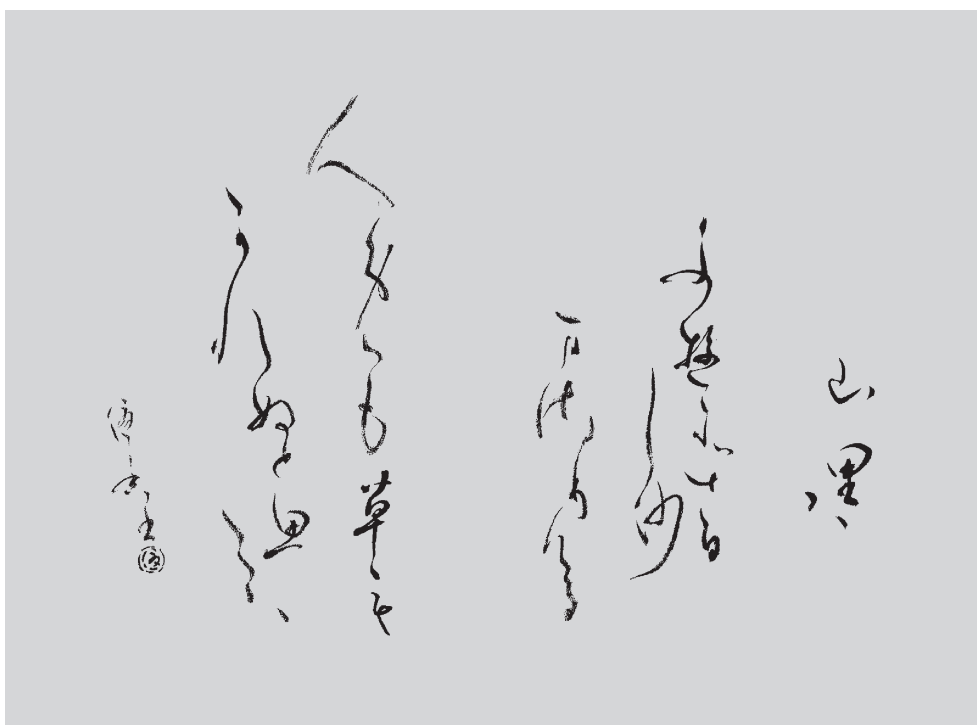 山里は
冬ぞさび
しさ
まさりける
人めも草も
かれぬと思
へば